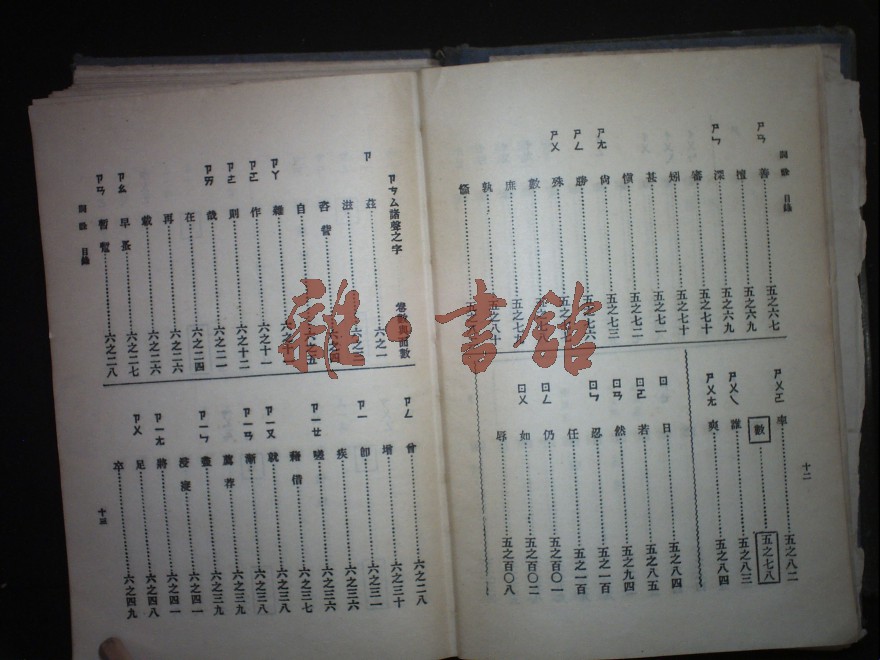 詞詮 目錄
十二
ㄕㄢ 善 五之六七
五之六九
ㄕㄣ 深 五之六九
審 五之七十
矧 五之七十
甚 五之七一
愼 五之七一
ㄕㄤ 尙 五之七三
ㄕㄥ 勝 五之七六
ㄕㄨ 殊 五之七
數 五之七
庶 五之七八
孰 五之八十
五之
率 五之八二
數 五之七八
ㄕㄨㄟ 誰 五之八三
ㄕㄨㄤ 爽 五之八四
ㄖ 日 五之八四
ㄖㄛ 若 五之八五
ㄖㄢ 然 五之九四
ㄖㄣ 忍 五之一百
任 五之一百
ㄖㄥ 仍 五之百〇一
ㄖㄨ 如 五之百〇二
辱 五之百〇八
ㄗㄘㄙ諸聲之字 卷數與面數
ㄗ 茲 六之一
滋 六之
咨 訾 六之
自 六之五
ㄗㄚ 雜 六之十一
ㄗㄛ 作 六之十一
ㄗㄜ 則 六之十二
ㄗㄞ 哉 六之二四
在 六之二四
再 六之二六
載 六之二六
ㄗㄠ 早 蚤 六之二七
ㄗㄢ 暫 六之二八
詞詮 目錄
ㄗㄥ 曾 六之二八
增 六之三十
ㄗㄧ 卽 六之三一
疾 六之三六
ㄗㄧㄝ 嗟 六之三六
藉 借 六之三七
ㄗㄧㄡ 就 六之三八
ㄗㄧㄢ 漸 六之三八
薦 荐 六之三九
ㄗㄧㄣ 盡 六之三九
浸 寖 六之四一
ㄗㄧㄤ 將 六之四一
足 六之四八
ㄗㄨ 卒 六之四九
十三
雜·書館